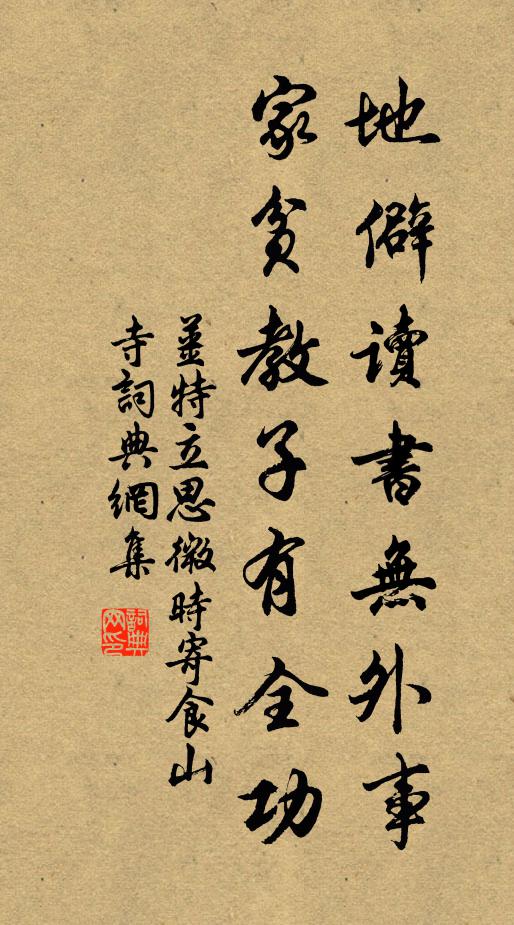 地僻讀書無外事
家貧教子有全功
薑特立思微時寄食山
寺詞典網集
詞典网印